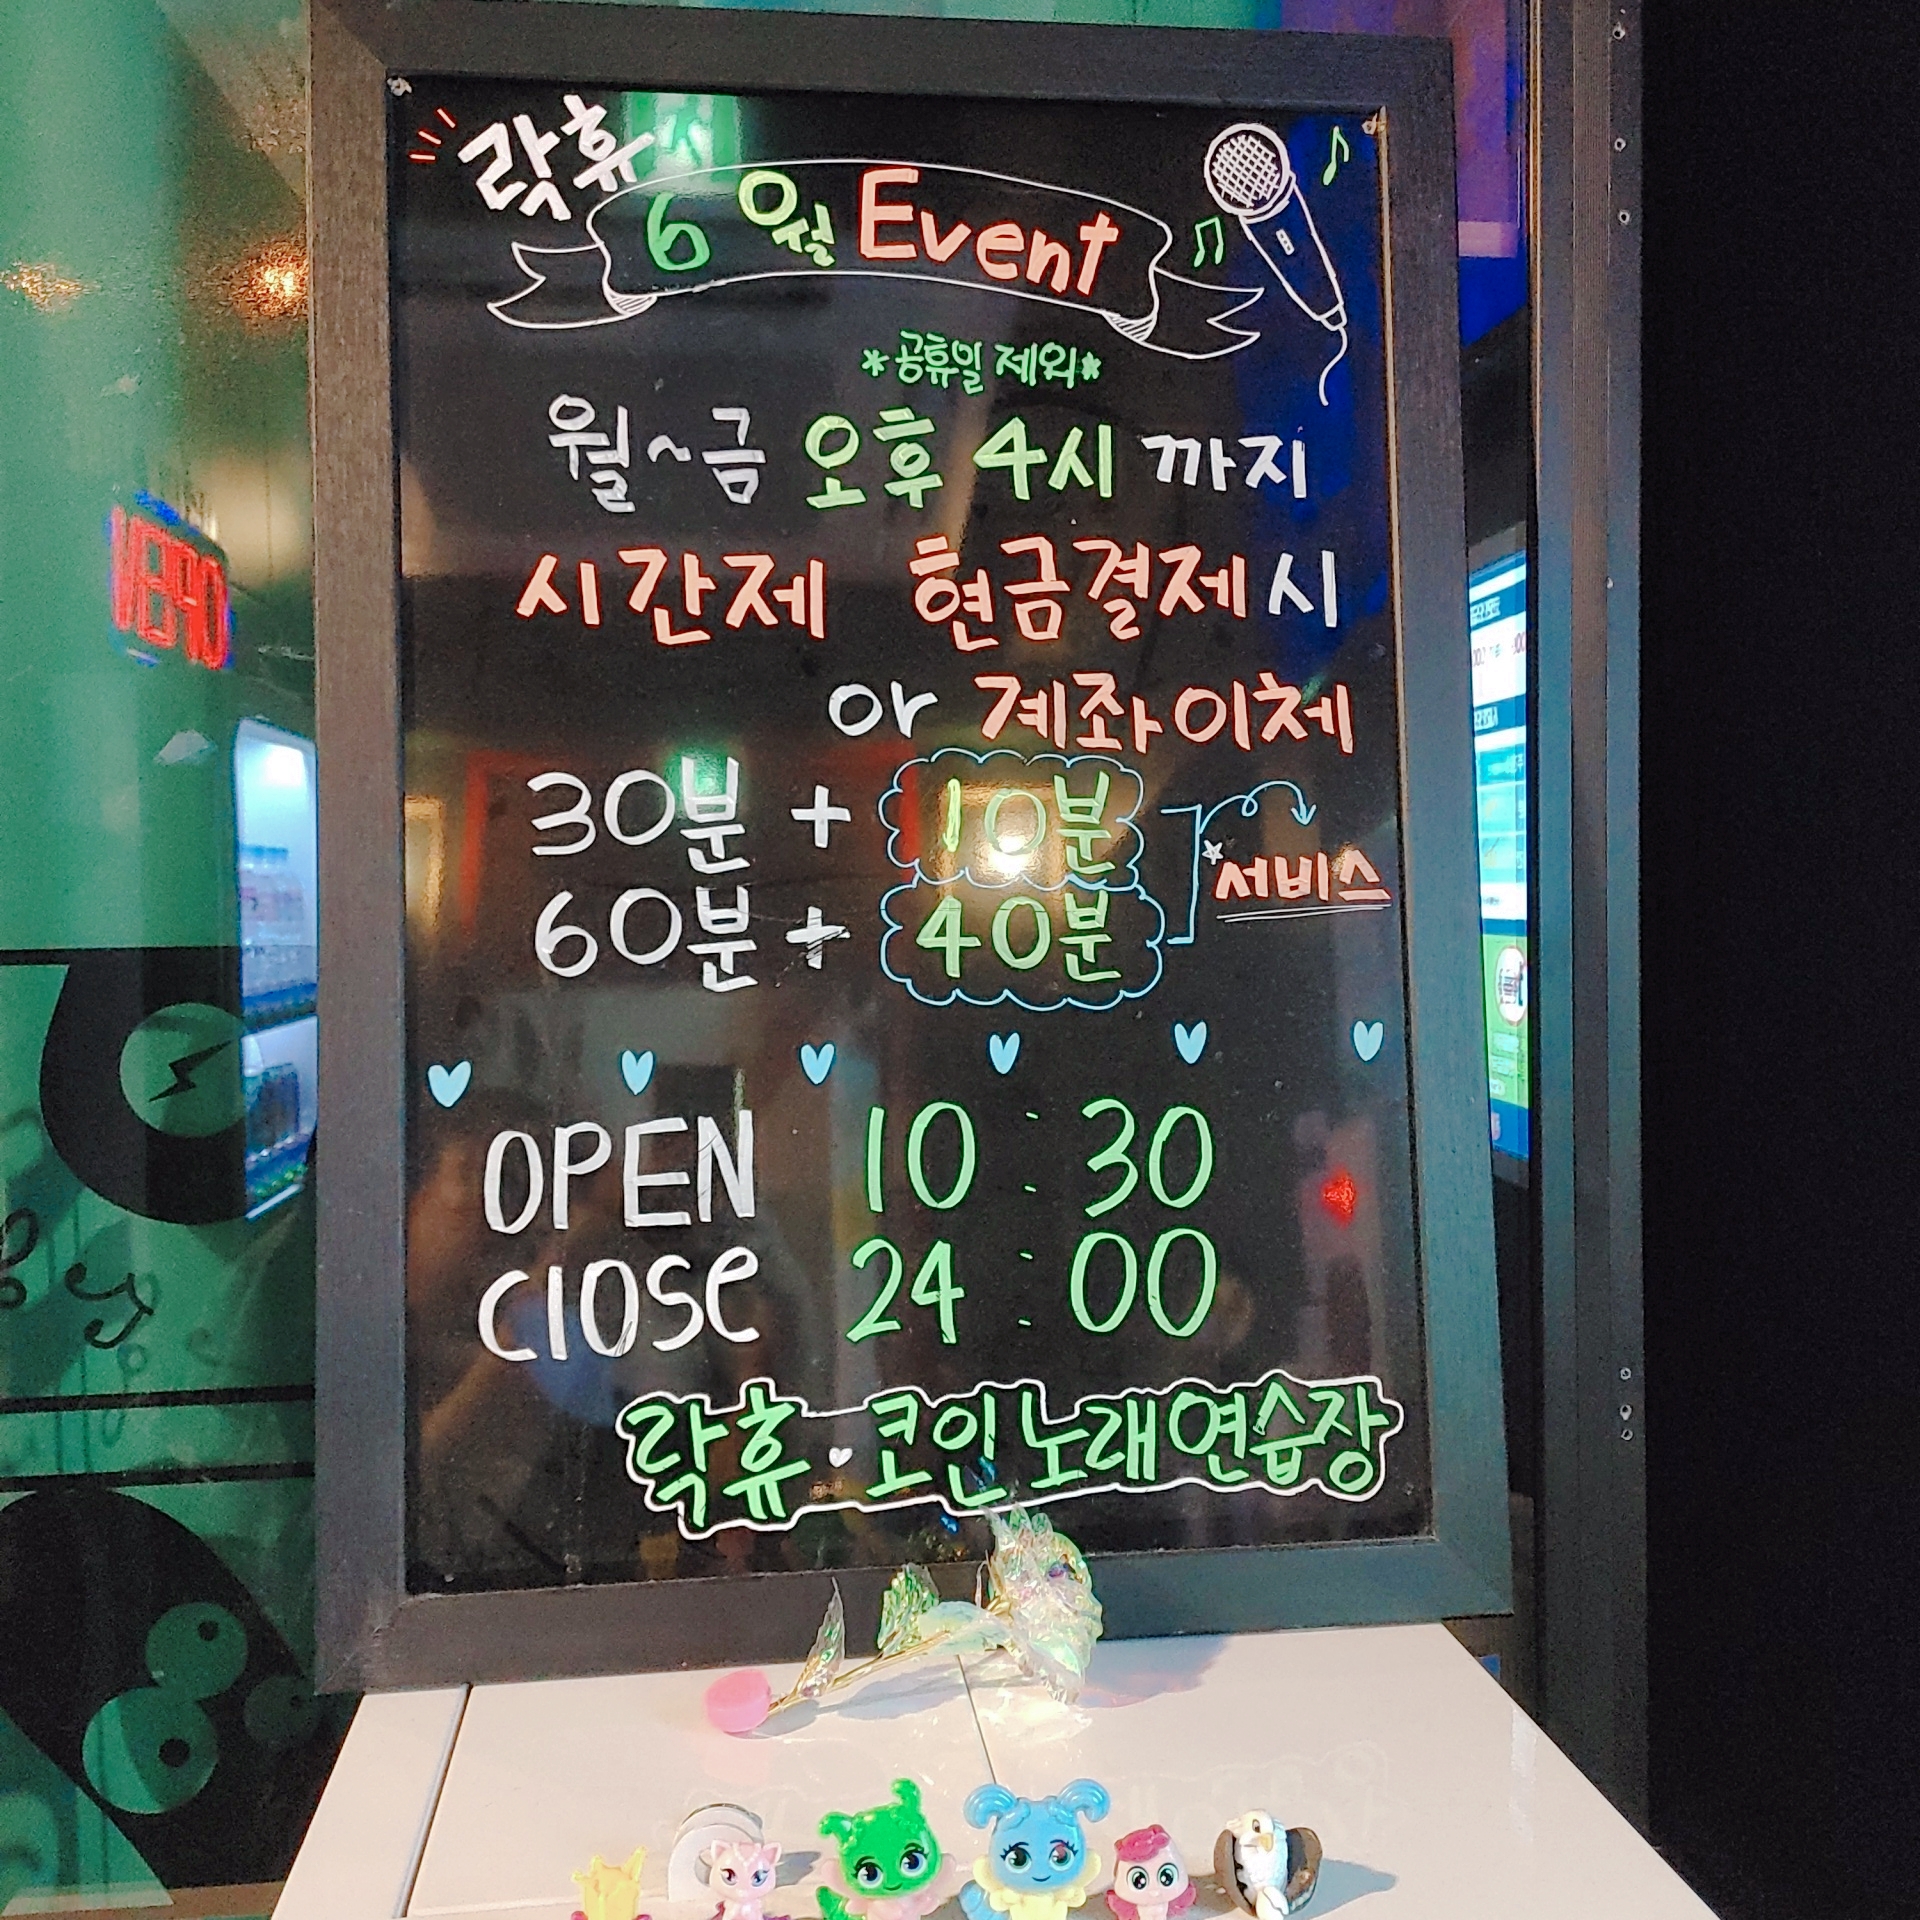 락휴
6월 Event
*공휴일 제외*
월~금 오후 4시 까지
시간제 현금결제시
or 계좌이체
30분 + 10분
60분 + 40분
*서비스
OPEN 10:30
Close 24:00
락휴·코인노래연습장